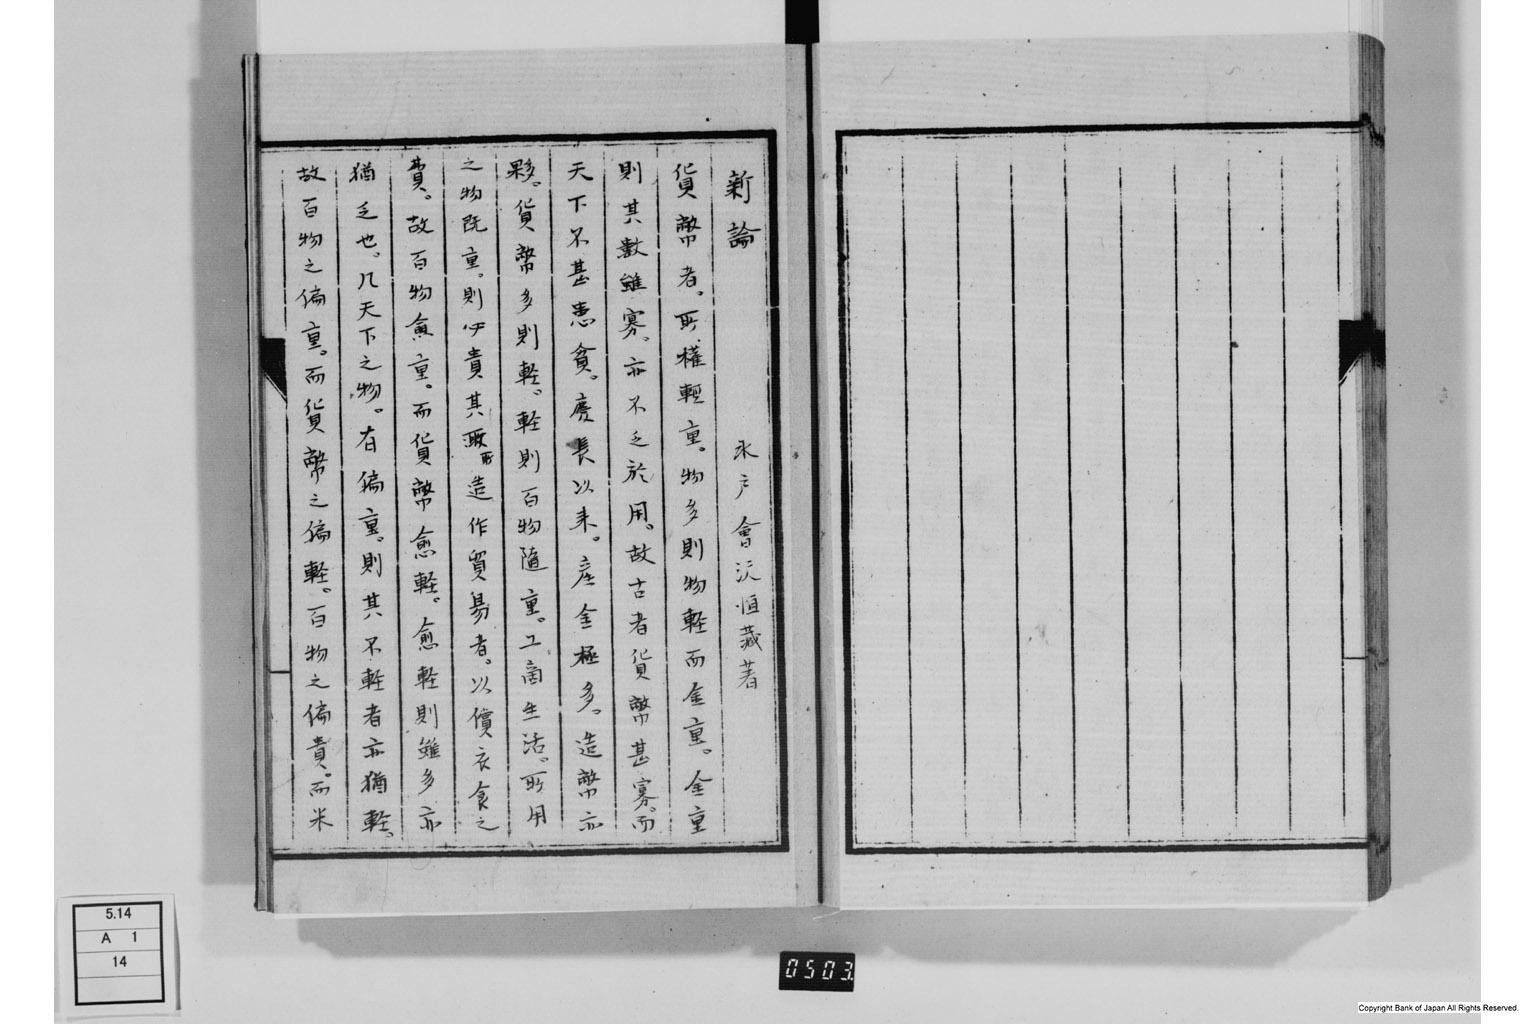 新論
水戸 會沢恒蔵著
貨幣者。所権輕重。物多則物軽而金重。金重
則其數雖寡。亦不乏於用。故古者貨幣甚寡。而
天下不甚患貧。慶長以来。産金極多。造幣亦
夥。貨幣多則軽。軽則百物随重。工商生活。所用
之物既重。則必貴其所造作貿易者。以償衣食之
費。故百物兪重。而貨幣愈軽。愈軽則雖多亦
猶乏也。凡天下之物。有偏重。則其不軽者亦猶軽。
故百物之偏重。而貨幣之偏軽。百物之偏貴。而米
5.14
A 1
14
0503
Copyright Bank of Japan All Rights Reserved.